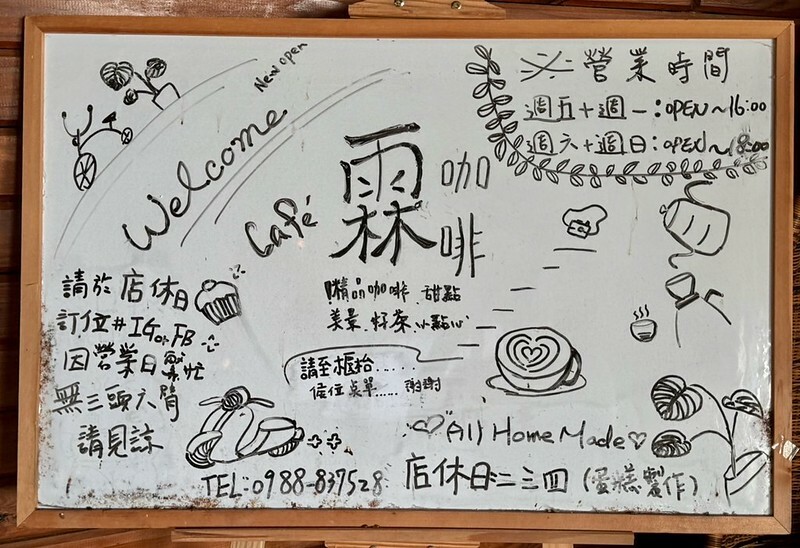 New open
Welcome
Café
霖咖啡
※營業時間
週五+週一:OPEN~16:00
週六+週日:OPEN~18:00
精品咖啡.甜點
美景.好茶.小點心
請於店休日
訂位#IG or FB
因營業日繁忙
無三頭六臂
請見諒
請至櫃抬......
位桌單......謝謝
♡"All Home Made♡
TEL:0988-837528
店休日:二三四(蛋糕製作)